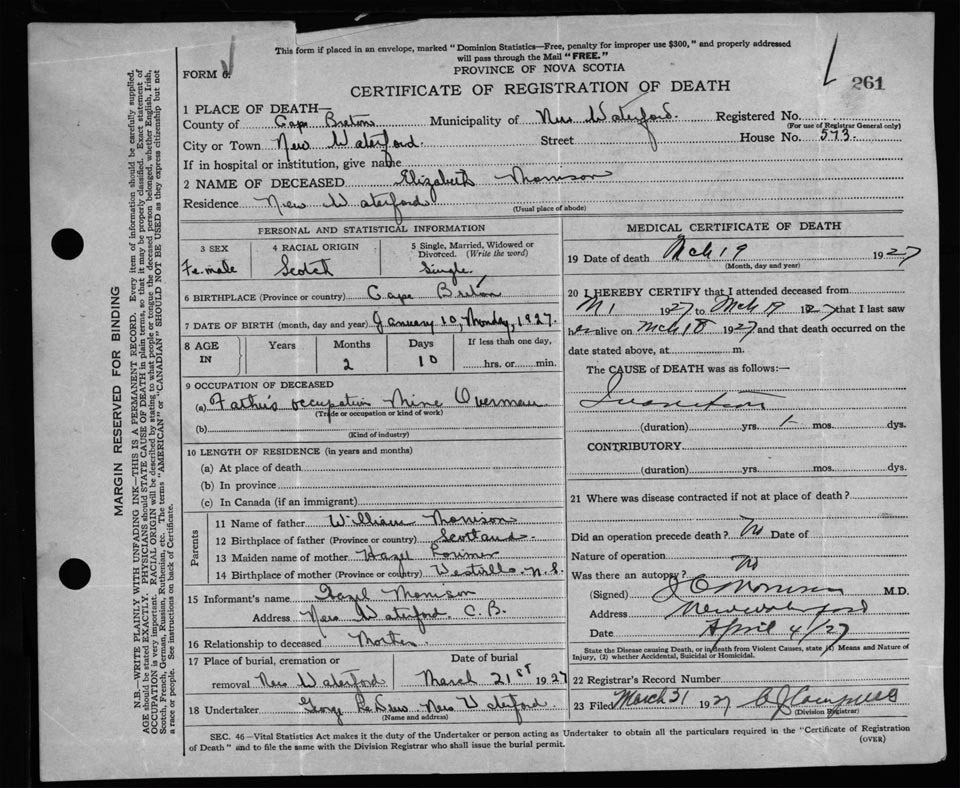 This form if placed in an envelope, marked "Dominion Statistics—Free, penalty for improper use $300," and properly addressed
will pass through the Mail "FREE."
FORM 6.
PROVINCE OF NOVA SCOTIA
261
CERTIFICATE OF REGISTRATION OF DEATH
1 PLACE OF DEATH—
County of Cape Breton Municipality of New Waterford. Registered No.
(For use of Registrar General only)
City or Town New Waterford. Street House No. 573.
If in hospital or institution, give name
2 NAME OF DECEASED Elizabeth Morrison
Residence New Waterford
(Usual place of abode)
PERSONAL AND STATISTICAL INFORMATION
3 SEX 4 RACIAL ORIGIN 5 Single, Married, Widowed or Divorced. (Write the word)
Female Scotch Single
6 BIRTHPLACE (Province or country) Cape Breton
7 DATE OF BIRTH (month, day and year) January 10, Monday, 1927.
8 AGE IN Years Months Days If less than one day,
2 10 hrs. or min.
9 OCCUPATION OF DECEASED
(a) Father's occupation Mine Overman
(Trade or occupation or kind of work)
(b)
(Kind of industry)
10 LENGTH OF RESIDENCE (in years and months)
(a) At place of death
(b) In province
(c) In Canada (if an immigrant)
Parents
11 Name of father William Morrison
12 Birthplace of father (Province or country) Scotland.
13 Maiden name of mother Hazel Lorimer
14 Birthplace of mother (Province or country) N.S.
15 Informant's name Hazel Morrison
Address New Waterford, C.B.
16 Relationship to deceased Mother
17 Place of burial, cremation or Date of burial
removal New Waterford March 21st 1927
18 Undertaker George New Waterford.
(Name and address)
MEDICAL CERTIFICATE OF DEATH
19 Date of death Mch 19 1927
(Month, day and year)
20 I HEREBY CERTIFY that I attended deceased from
M 1 1927 to Mch 19 1927 that I last saw
her alive on Mch 18 1927 and that death occurred on the
date stated above, at m.
The CAUSE of DEATH was as follows:—
Inanition
(duration) yrs. 1 mos. dys.
CONTRIBUTORY
(duration) yrs. mos. dys.
21 Where was disease contracted if not at place of death?
Did an operation precede death? No Date of
Nature of operation
Was there an autopsy? No
(Signed) M.D.
Address New Waterford
Date April 4/27
State the Disease causing Death, or in death from Violent Causes, state (1) Means and Nature of
Injury, (2) whether Accidental, Suicidal or Homicidal.
22 Registrar's Record Number
23 Filed March 31 1927
(Division Registrar)
SEC. 46—Vital Statistics Act makes it the duty of the Undertaker or person acting as Undertaker to obtain all the particulars required in the "Certificate of Registration
of Death" and to file the same with the Division Registrar who shall issue the burial permit.
(OVER)
MARGIN RESERVED FOR BINDING
N.B.—WRITE PLAINLY WITH UNFADING INK—THIS IS A PERMANENT RECORD. Every item of information should be carefully supplied.
AGE should be stated EXACTLY. PHYSICIANS should STATE CAUSE OF DEATH in plain terms, so that it may be properly classified. Exact statement of
OCCUPATION is very important. RACIAL ORIGIN will be described by stating to what people or tongue the deceased person belonged, whether English, Irish,
Scotch, French, German, Russian, Ruthenian, etc. The terms "AMERICAN" or "CANADIAN" SHOULD NOT BE USED as they express citizenship but not
a race or people. See instructions on back of Certificate.